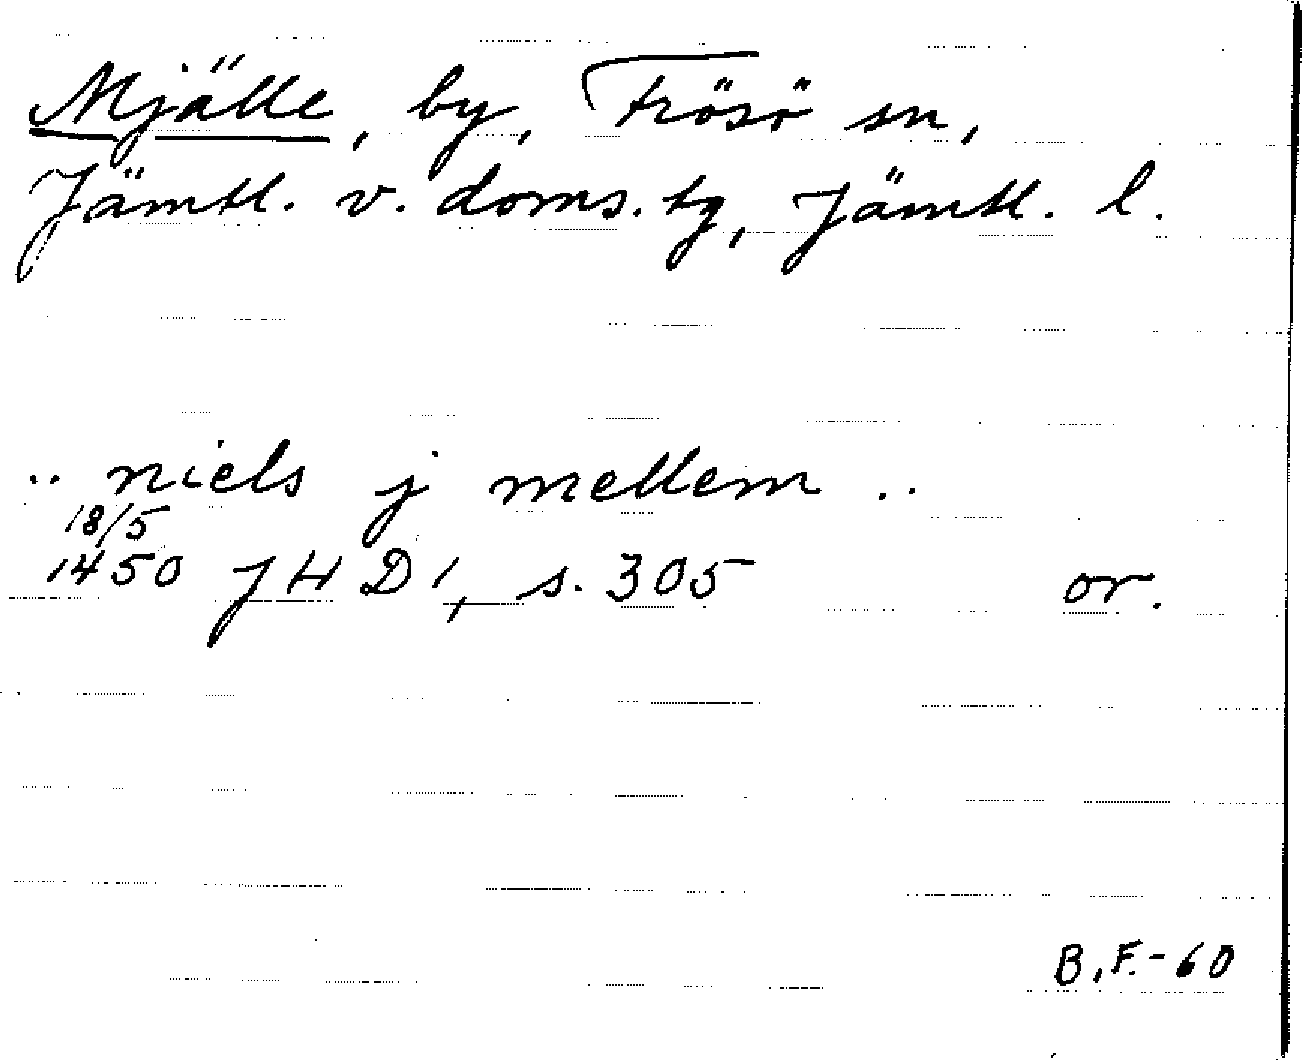 Mjälle, by, Frösö sn,
Jämtl. v. doms. tg, Jämtl. l.
.. niels j mellem ..
18/5
1450 JHD 1, s. 305 or.
B.F.-60